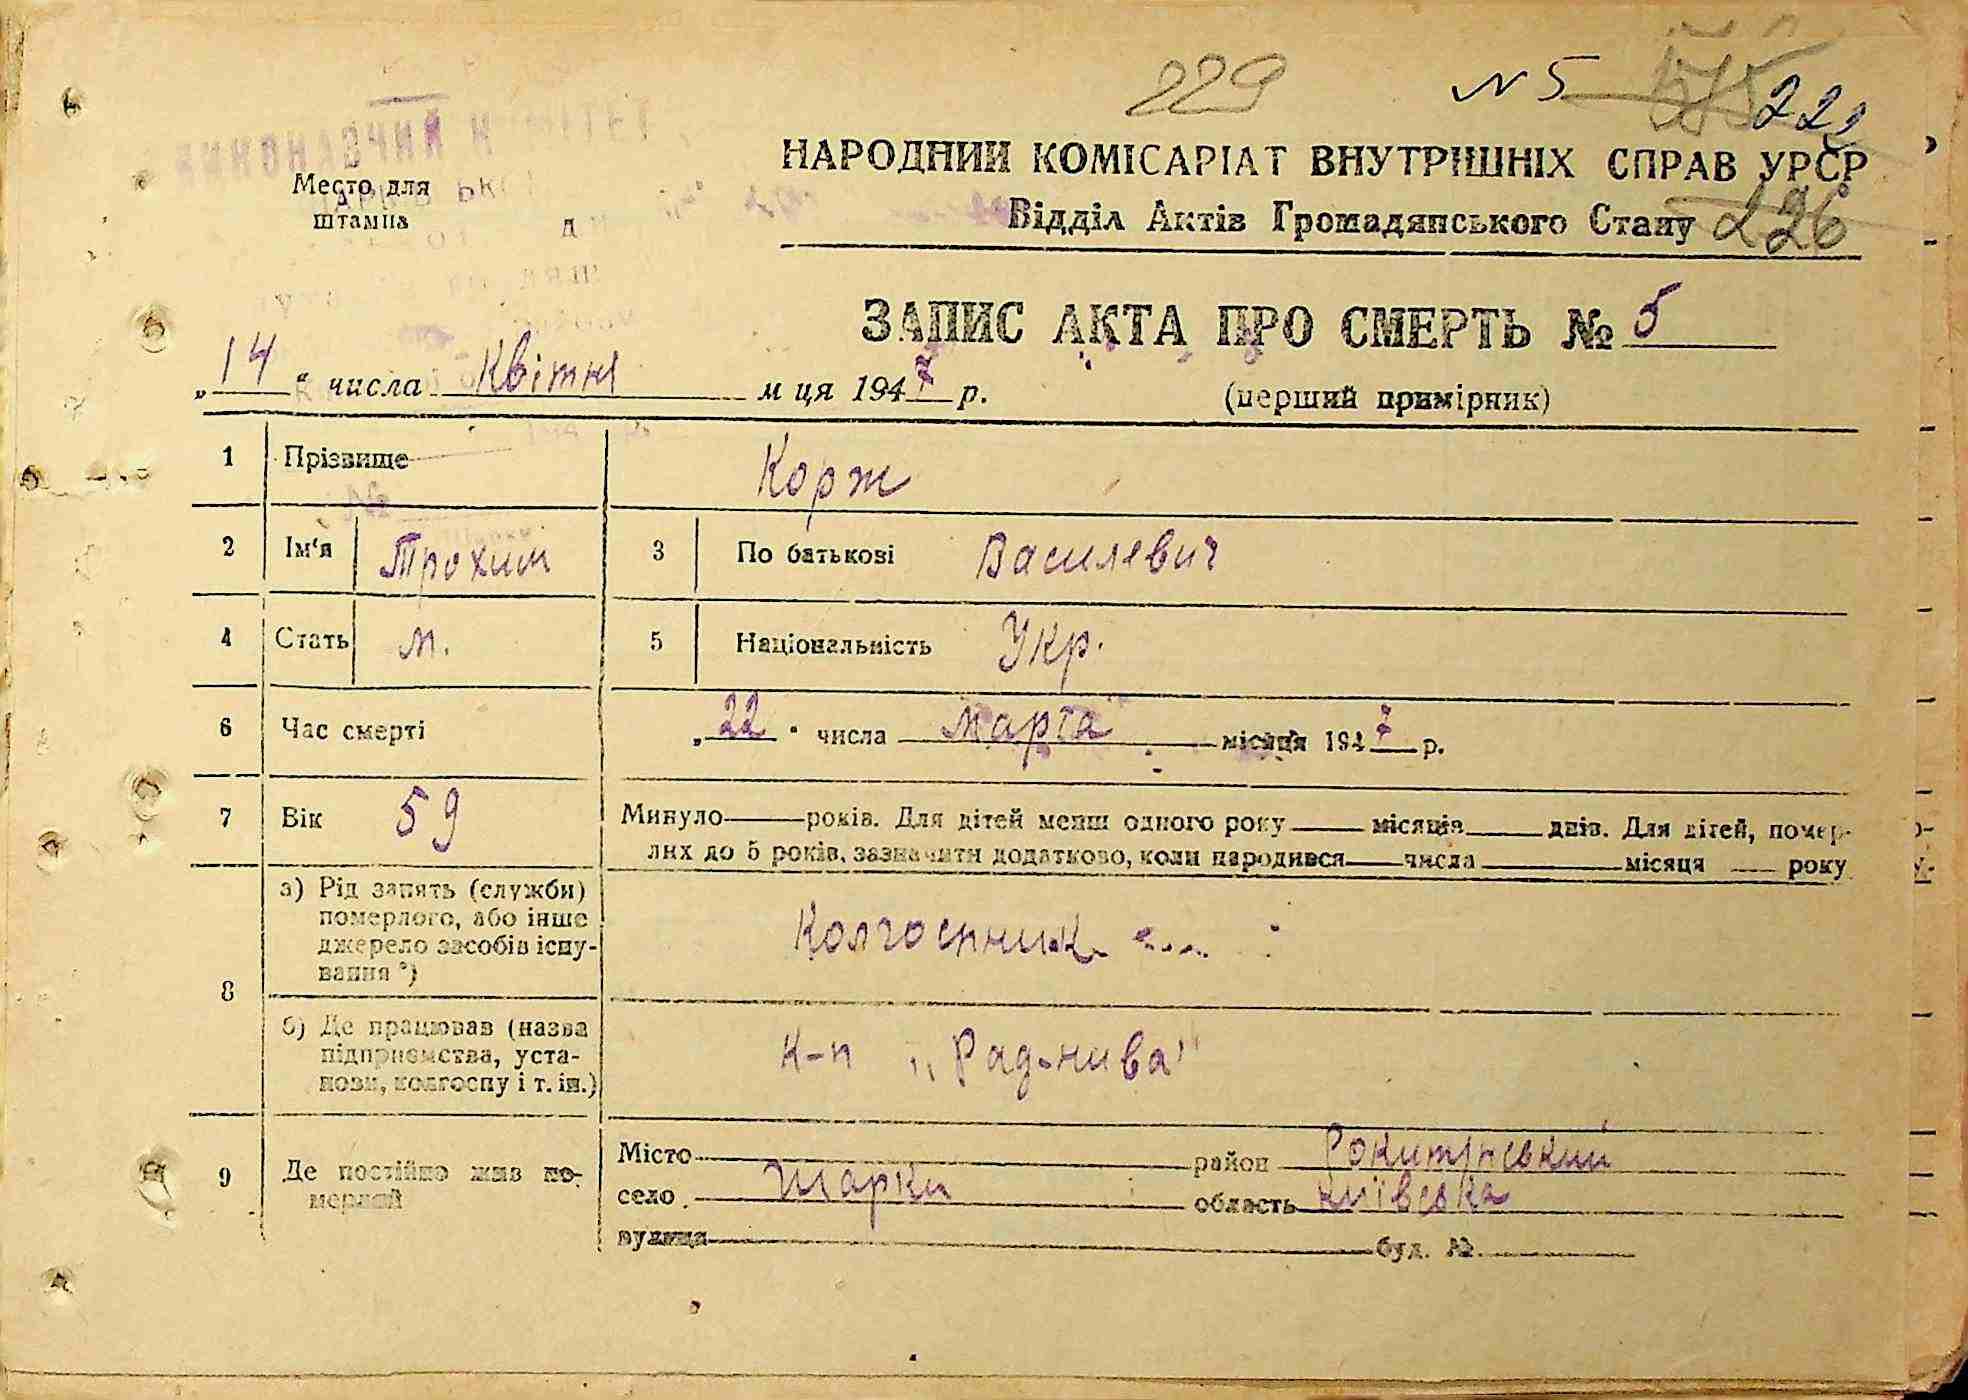 229 № 5 222
НАРОДНИЙ КОМІСАРІАТ ВНУТРІШНІХ СПРАВ УРСР
Место для
штампа
Відділ Актів Громадянського Стану 226
ЗАПИС АКТА ПРО СМЕРТЬ № 5
„14“ числа Квітня м ця 1947 р. (перший примірник)
1 Прізвище Корж
2 Ім'я Трохим 3 По батькові Василевич
4 Стать м. 5 Національність Укр.
6 Час смерті „22“ числа марта місяця 1947 р.
7 Вік 59 Минуло — років. Для дітей менш одного року — місяців — днів. Для дітей, помер-
лих до 5 років, зазначити додатково, коли народився — числа — місяця — року
8 а) Рід занять (служби)
померлого, або інше
джерело засобів існу-
вання *) Колгоспник
б) Де працював (назва
підприємства, уста-
нови, колгоспу і т. ін.) к-п „Рад-нива"
9 Де постійно жив по-
мерлий
Місто район Рокитнівський
село Шарки область Київська
вулиця буд. №